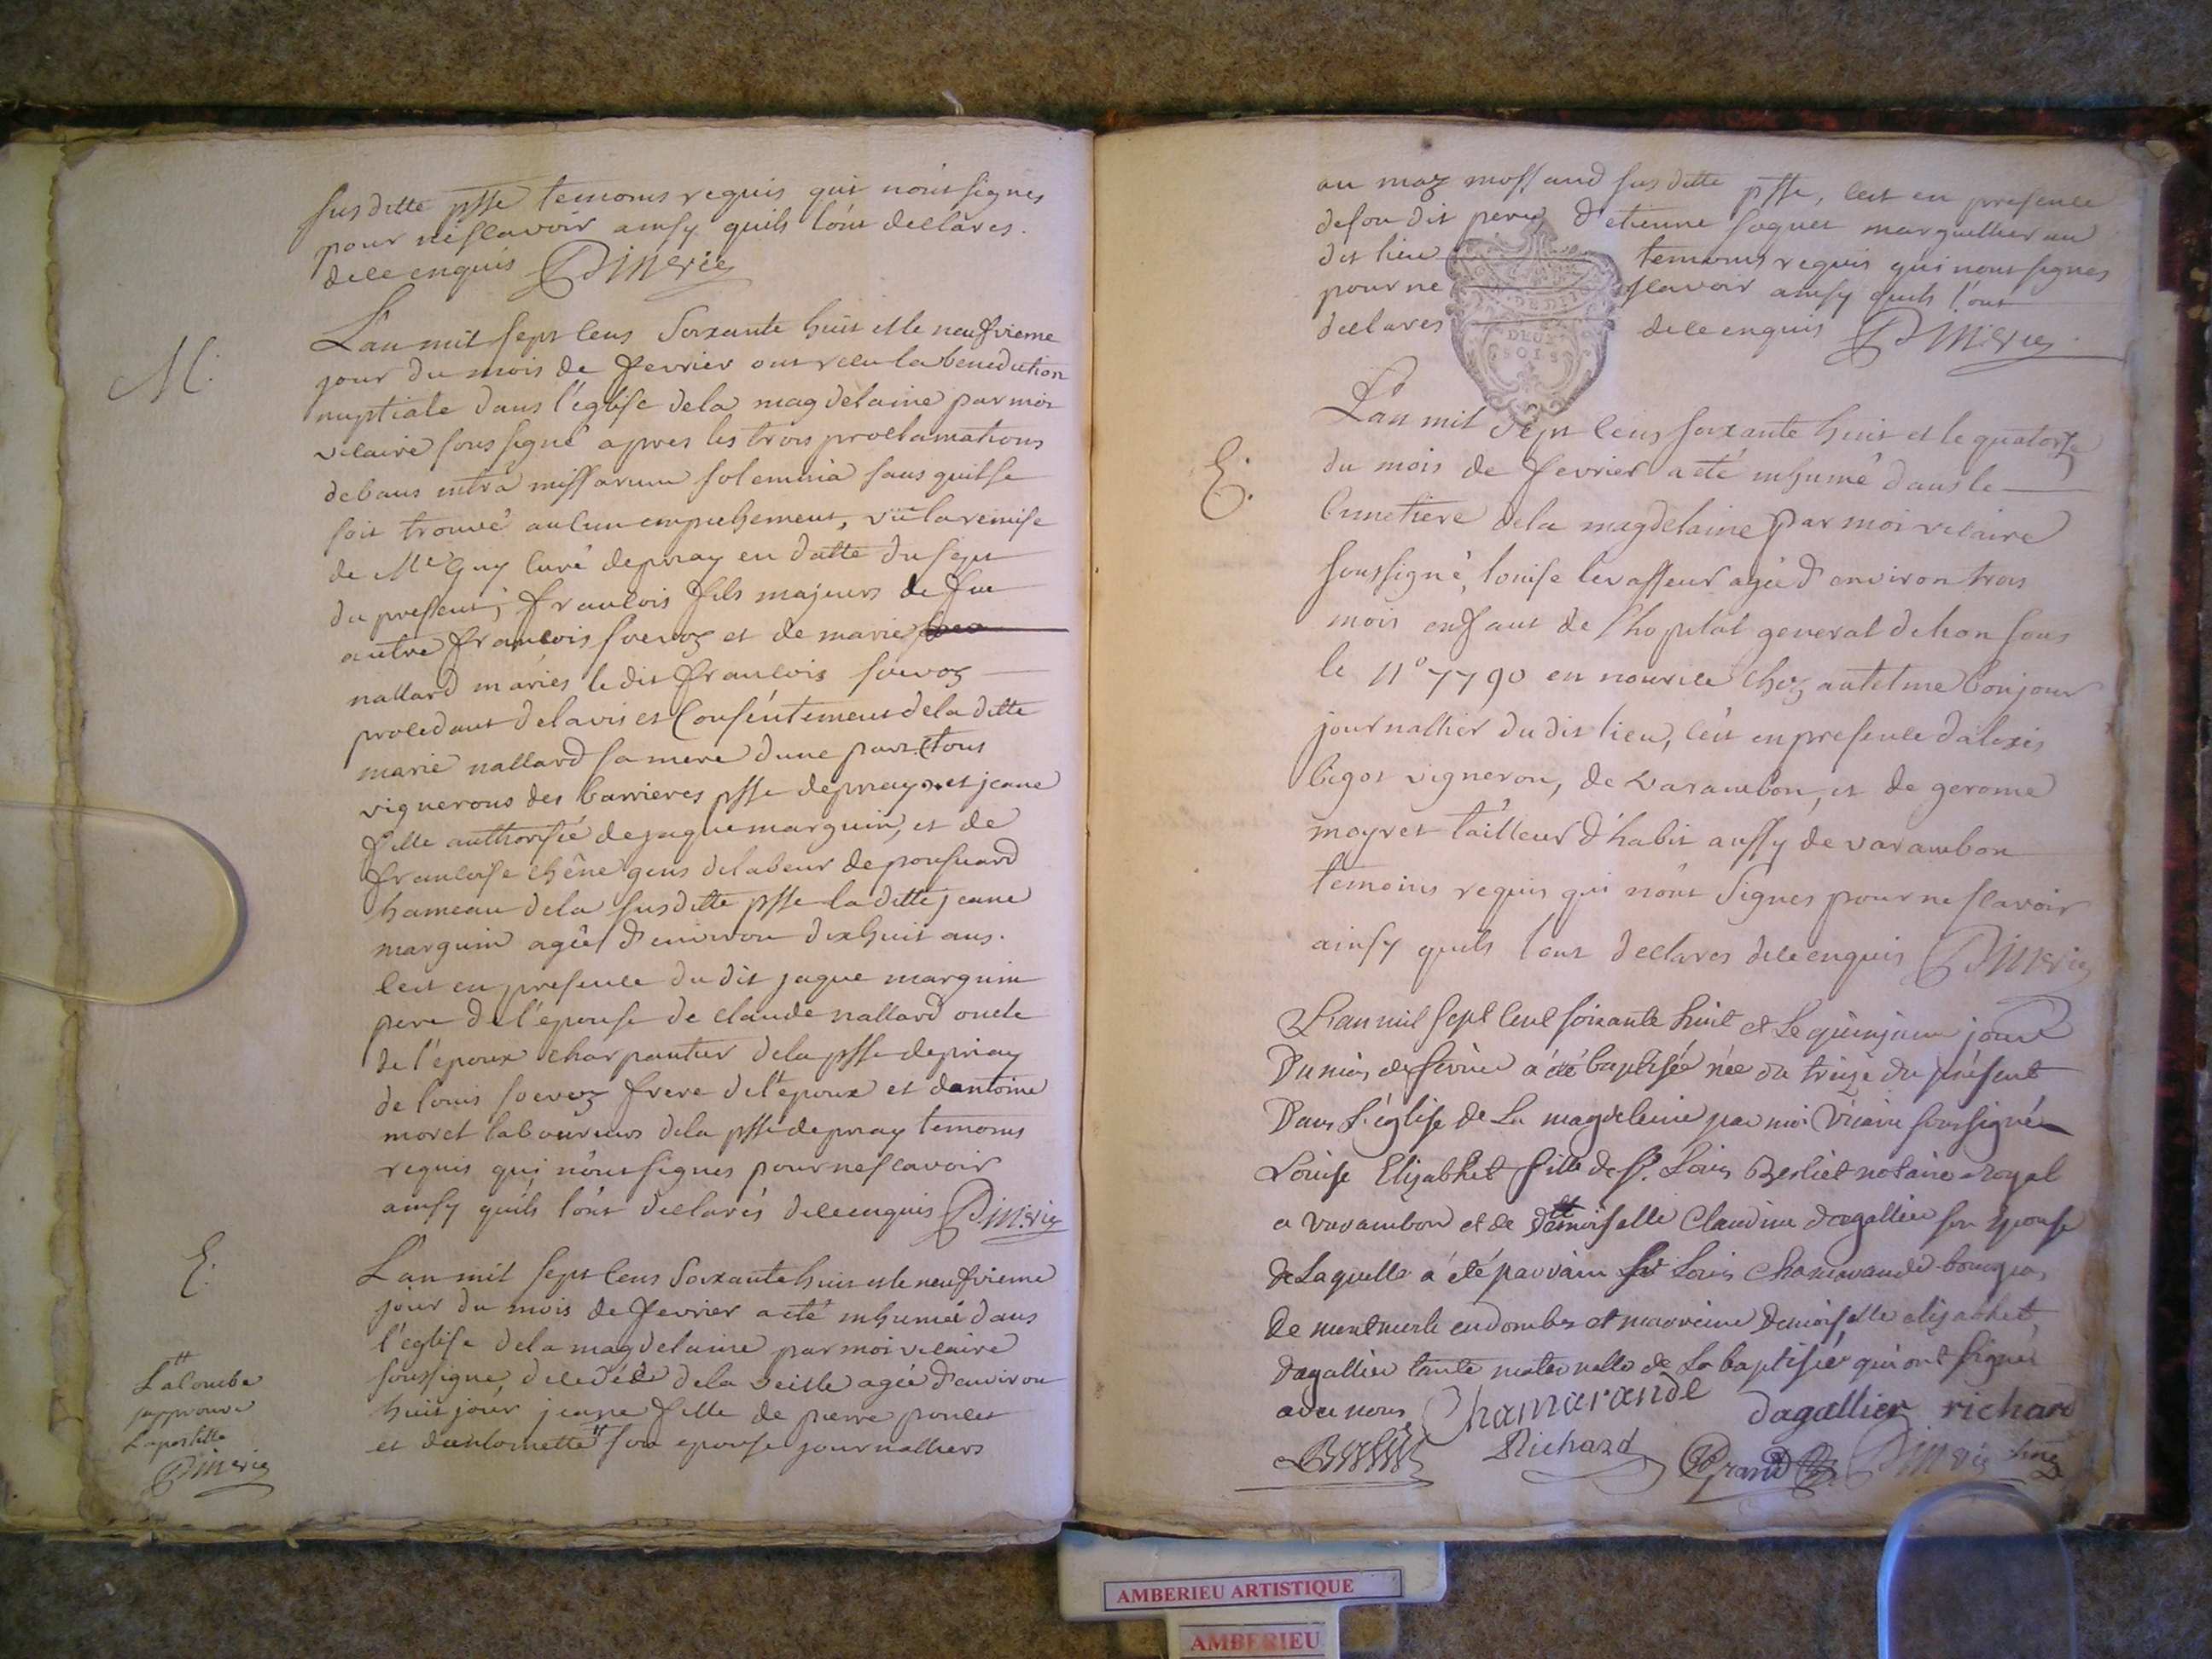 susditte psse temoins requis qui n'ont signes
pour ne scavoir ainsy quils l'ont declares.
de ce enquis Dimerie
M.
L'an mil sept cens soixante huit et le neufvieme
jour du mois de fevrier ont recu la benediction
nuptiale dans l'eglise de la magdelaine par moi
vicaire soussigné apres les trois proclamations
de bans intra missarum solemnia sans qu'il se
soit trouvé aucun empechement, vü la remise
de Me Guy curé de priay en datte du sept
du present; francois fils majeurs de feu
autre francois soevoz et de marie
nallard mariés le dit francois soevoz
procedant de lavis et consentement de la ditte
marie nallard sa mere d'une part tous
vignerons des carrieres psse de priay et jeane
fille authorisée de jaque marguin, et de
francoise chêne gens de labeur de
hameau de la susditte psse la ditte jeane
marguin agée d'environ dix huit ans.
c'est en presence du dit jaque marguin
pere de l'epouse de claude nallard oncle
de l'epoux charpantier de la psse de priay
de louis soevoz frere de l'epoux et d'antoine
moret laboureurs de la psse de priay temoins
requis qui n'ont signes pour ne scavoir
ainsy quils l'ont declarés de ce enquis Dimerie
E.
L'an mil sept cens soixante huit et le neufvieme
jour du mois de fevrier a eté inhumée dans
l'eglise de la magdelaine par moi vicaire
soussigné decedée de la veille agée d'environ
huit jour jeane fille de pierre poncet
et d'antoinette # son epouse journalliers
# Lacombe
japprouve
Lapostille
Dimerie
au maz mossaud susditte psse, c'est en presence
de son dit pere d'etienne soquet marguillier au
dit lieu temoins requis qui n'ont signes
pour ne scavoir ainsy quils l'ont
declares de ce enquis Dimerie
DEUX
SOLS
E.
L'an mil sept cens soixante huit et le quatorze
du mois de fevrier a eté inhumé dans le
cimetiere de la magdelaine par moi vicaire
soussigné, louise levasseur agée d'environ trois
mois enfant de l'hopital general de lion sous
le n° 7790 en nourice chez antelme bonjour
journallier du dit lieu, c'est en presence d'alexis
bigot vigneron, de varambon, et de gerome
moyret tailleur d'habit aussy de varambon
temoins requis qui n'ont signes pour ne scavoir
ainsy quils l'ont declares de ce enquis Dimerie
L'an mil sept cent soixante huit et le quinzieme jour
Du mois de fevrier a été baptisée née du treize du présent
Dans L'église de La magdeleine par moi vicaire soussigné
Louise Elizabhet fille de Sr. Louis Berliet notaire royal
a varambon et de Demoiselle Claudine dagallier son épouse
De Laquelle a été parrain Sr Louis Chamarande bourgeois
De montmerle en dombes et marreine Demoiselle elizabhet
dagallier tante maternelle de La baptisée qui ont signé
avec nous Chamarande dagallier richard
Berliet Richard Dimerie
AMBERIEU ARTISTIQUE
AMBERIEU